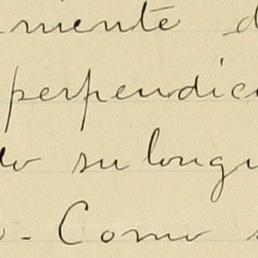 mente d
perpendicu
do su longu
o - Como s